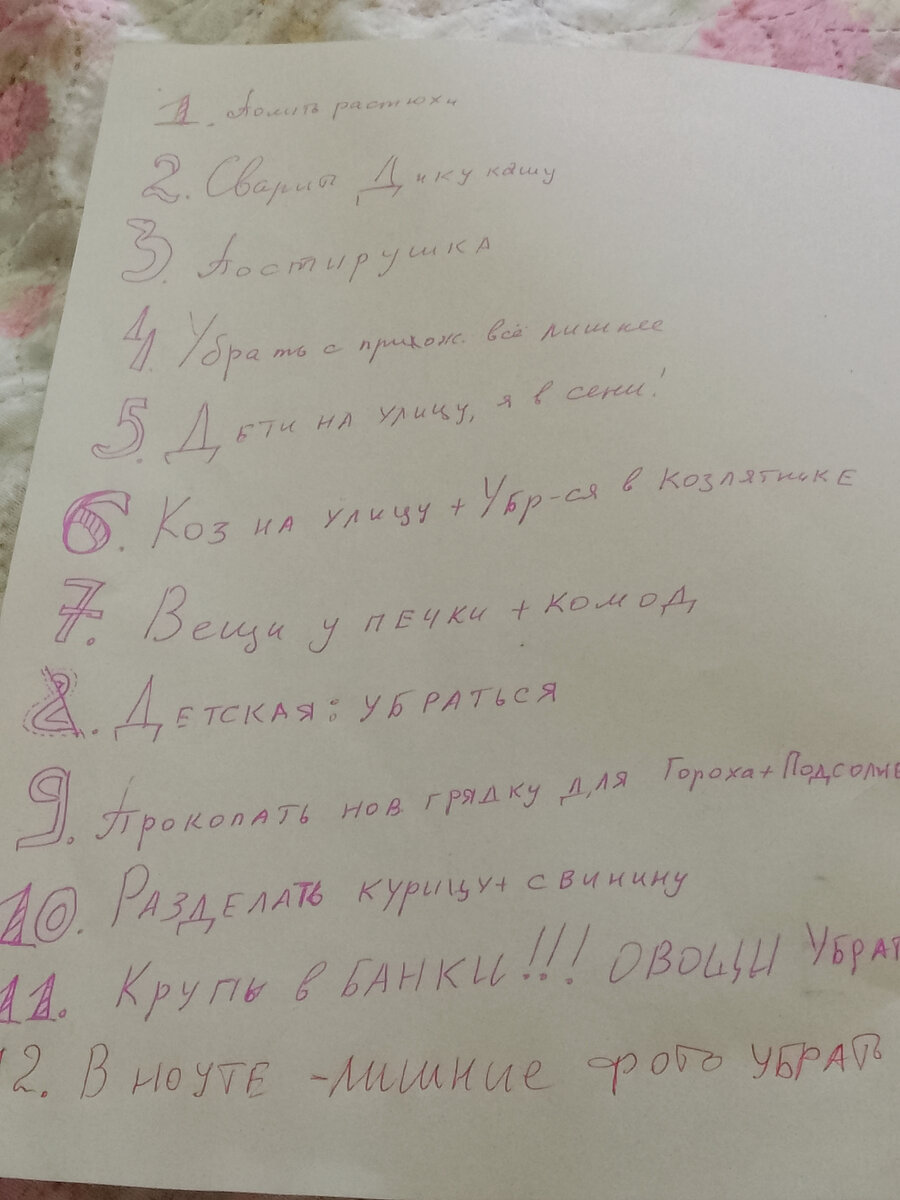 1. Полить растюхи
2. Сварить Дику кашу
3. Постирушка
4. Убрать с прихож. всё лишнее
5. Дети на улицу, я в сени!
6. Коз на улицу + Убр-ся в козлятнике
7. Вещи у печки + комод
8. Детская: убраться
9. Прокопать нов. грядку для Гороха + Подсолне
10. Разделать курицу + свинину
11. Крупы в БАНКИ!!! ОВОЩИ УБРАТ
12. В НОУТЕ - лишние фото УБРАТЬ